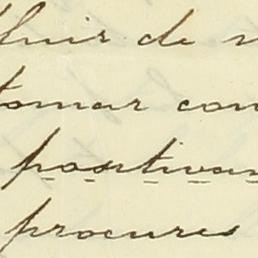 huir de
tomar con
positivam
procures